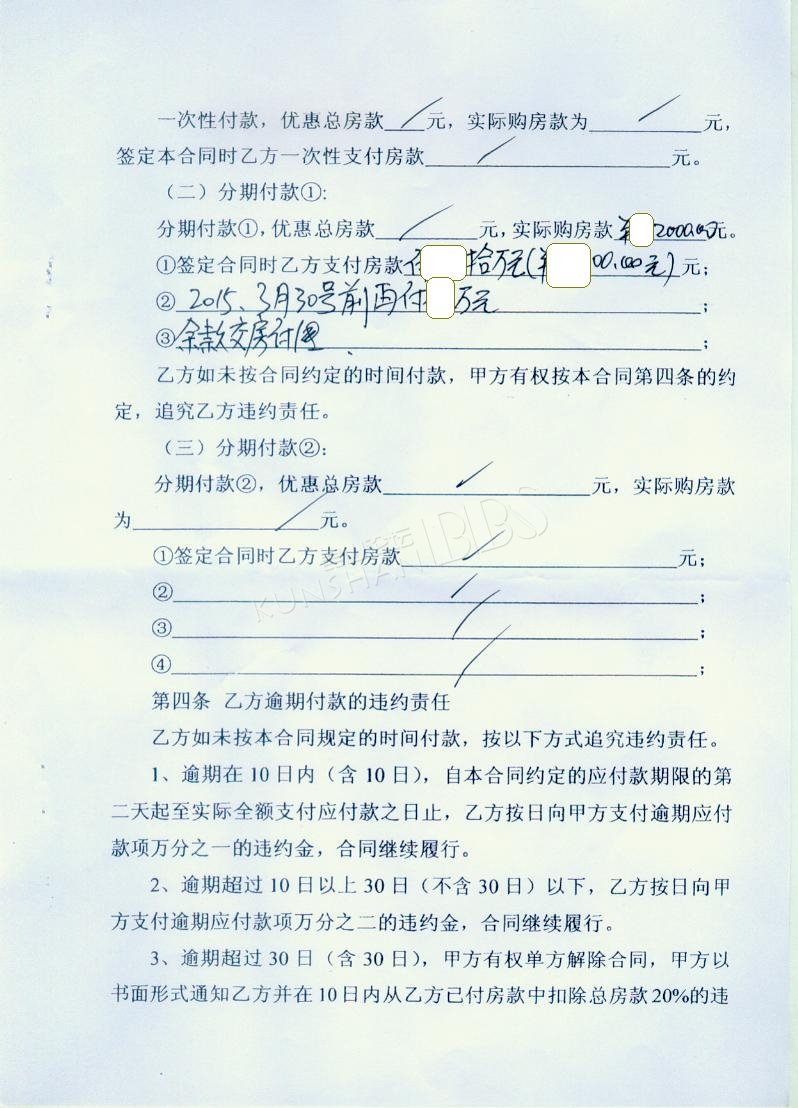 一次性付款，优惠总房款____元，实际购房款为________元，
签定本合同时乙方一次性支付房款________元。
（二）分期付款①：
分期付款①，优惠总房款________元，实际购房款 2000.00元。
①签定合同时乙方支付房款 拾万元( 00.00元)元；
② 2015、3月30号前再付 万元；
③余款交房付清；
乙方如未按合同约定的时间付款，甲方有权按本合同第四条的约
定，追究乙方违约责任。
（三）分期付款②：
分期付款②，优惠总房款________元，实际购房款
为________元。
①签定合同时乙方支付房款________元；
②________；
③________；
④________；
第四条 乙方逾期付款的违约责任
乙方如未按本合同规定的时间付款，按以下方式追究违约责任。
1、逾期在10日内（含10日），自本合同约定的应付款期限的第
二天起至实际全额支付应付款之日止，乙方按日向甲方支付逾期应付
款项万分之一的违约金，合同继续履行。
2、逾期超过10日以上30日（不含30日）以下，乙方按日向甲
方支付逾期应付款项万分之二的违约金，合同继续履行。
3、逾期超过30日（含30日），甲方有权单方解除合同，甲方以
书面形式通知乙方并在10日内从乙方已付房款中扣除总房款20%的违